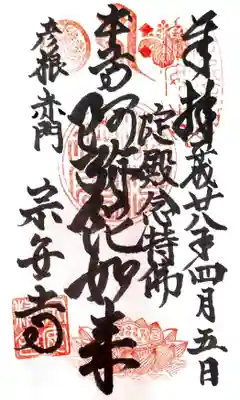 奉拝 平成廿八年四月五日
淀殿念持佛
本尊 阿弥陀如来
彦根赤門
宗安寺